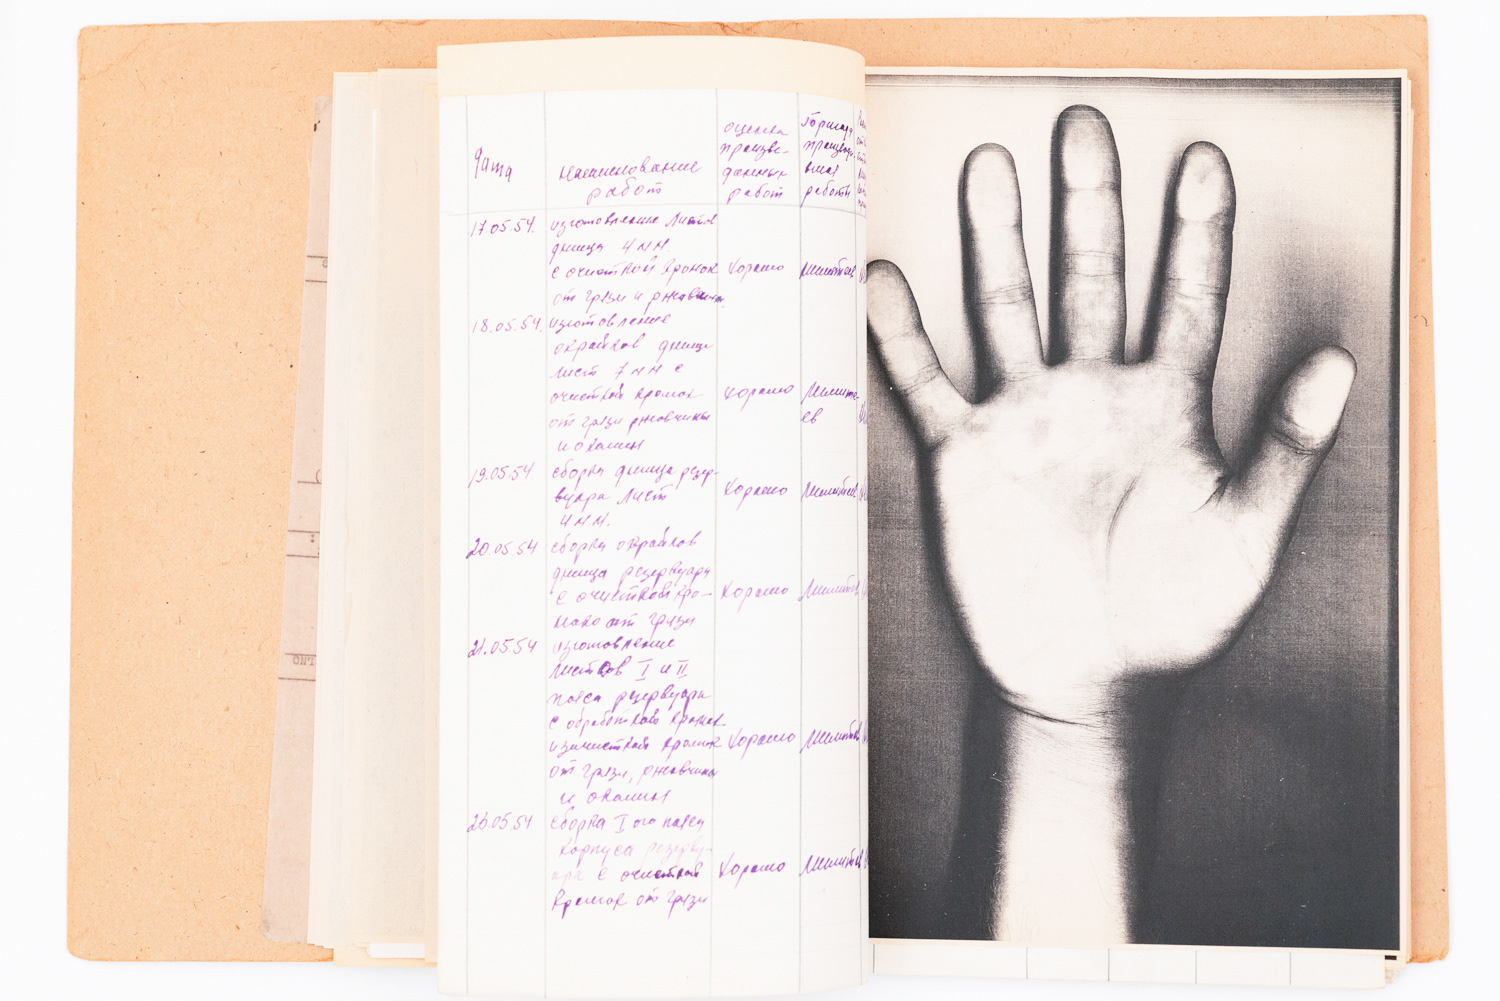 Дата
наименование
работ
оценка
произве-
денных
работ
бригада
производи
вшая
работы
17.05.54.
изготовление листов
днища 4 мм
с очисткой кромок
от грязи и ржавчины
хорошо
18.05.54.
изготовление
окрайков днища
лист 7 мм с
очисткой кромок
от грязи ржавчины
и окалины
хорошо
19.05.54
сборка днища резер-
вуара лист
4 мм.
хорошо
20.05.54
сборка окрайков
днища резервуара
с очисткой кро-
мок от грязи
хорошо
21.05.54
изготовление
листов I и II
пояса резервуара
с обработкой кромок
и зачисткой кромок
от грязи, ржавчины
и окалины
хорошо
26.05.54
сборка I ого пояса
корпуса резерву-
ара с очисткой
кромок от грязи
хорошо